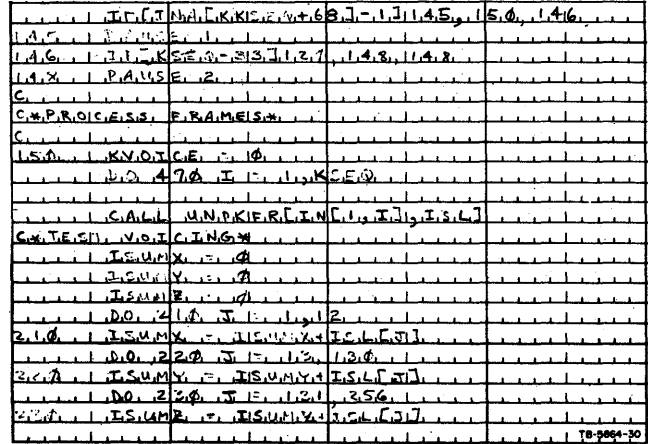 IF[INA[KKSEQ+68]-1]145,150,146
145 PAUSE 1
146 IF[KSEQ-33]127,148,148
148 PAUSE 2
C
C*PROCESS FRAMES*
C
150 KVOICE = 0
DO 470 I = 1,KSEQ
CALL UNPKFR[IN[1,I],ISL]
C*TEST VOICING*
ISUMX = 0
ISUMY = 0
ISUMZ = 0
DO 210 J = 1,12
210 ISUMX = ISUMX+ISL[J]
DO 220 J = 13,130
220 ISUMY = ISUMY+ISL[J]
DO 230 J = 131,256
230 ISUMZ = ISUMZ+ISL[J]
TB-5664-30